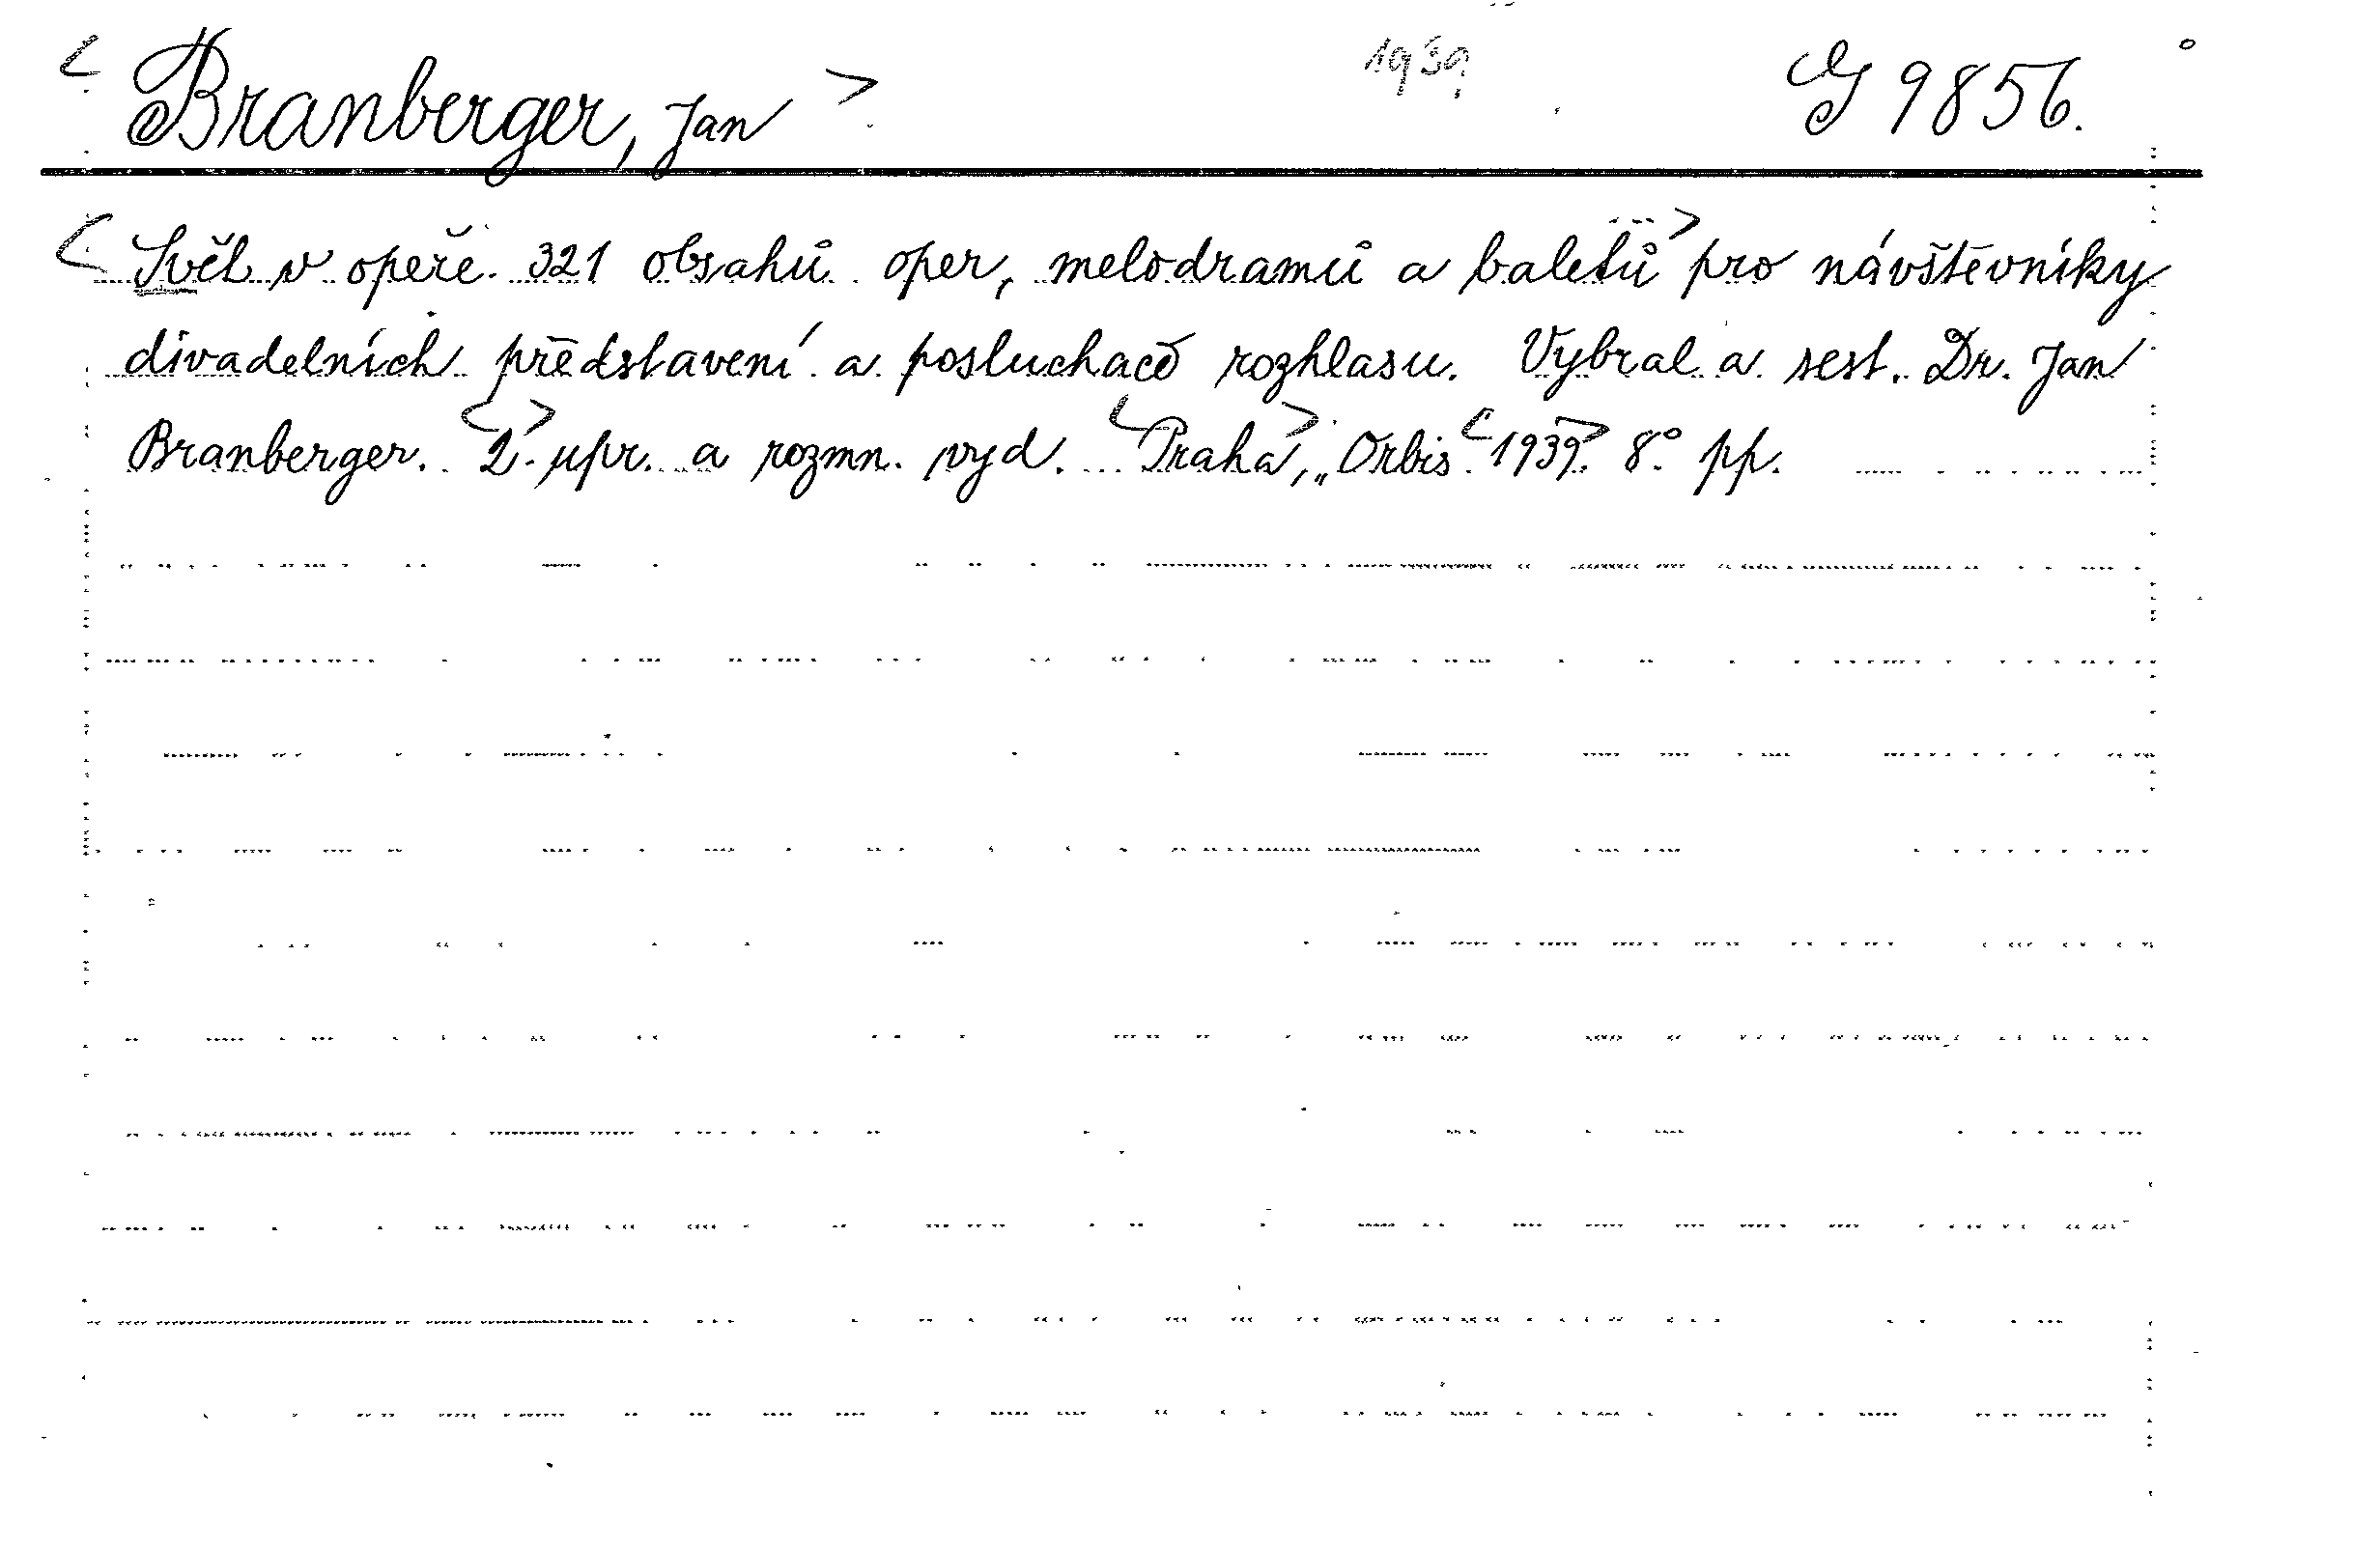 < Branberger, Jan > 1939 G 9856.
< Svět v opeře. 321 obsahů oper, melodramů a baletů > pro návštěvníky
divadelních představení a posluchačů rozhlasu. Vybral a sest. Dr. Jan
Branberger. <2.> upr. a rozmn. vyd. <Praha>, „Orbis" <1939>. 8° pp.